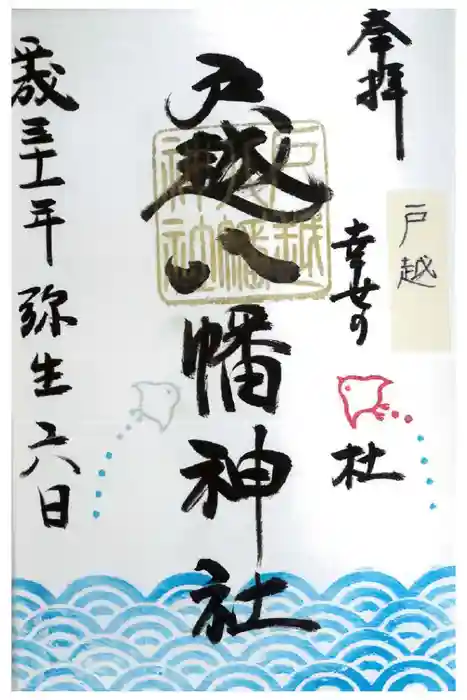 奉拝
戸越
幸せの
杜
戸越八幡神社
戸越
八幡
神社
平成三十一年 弥生 六日